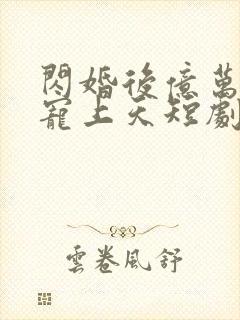 閃婚後億萬
寵上天短劇
雲卷風舒